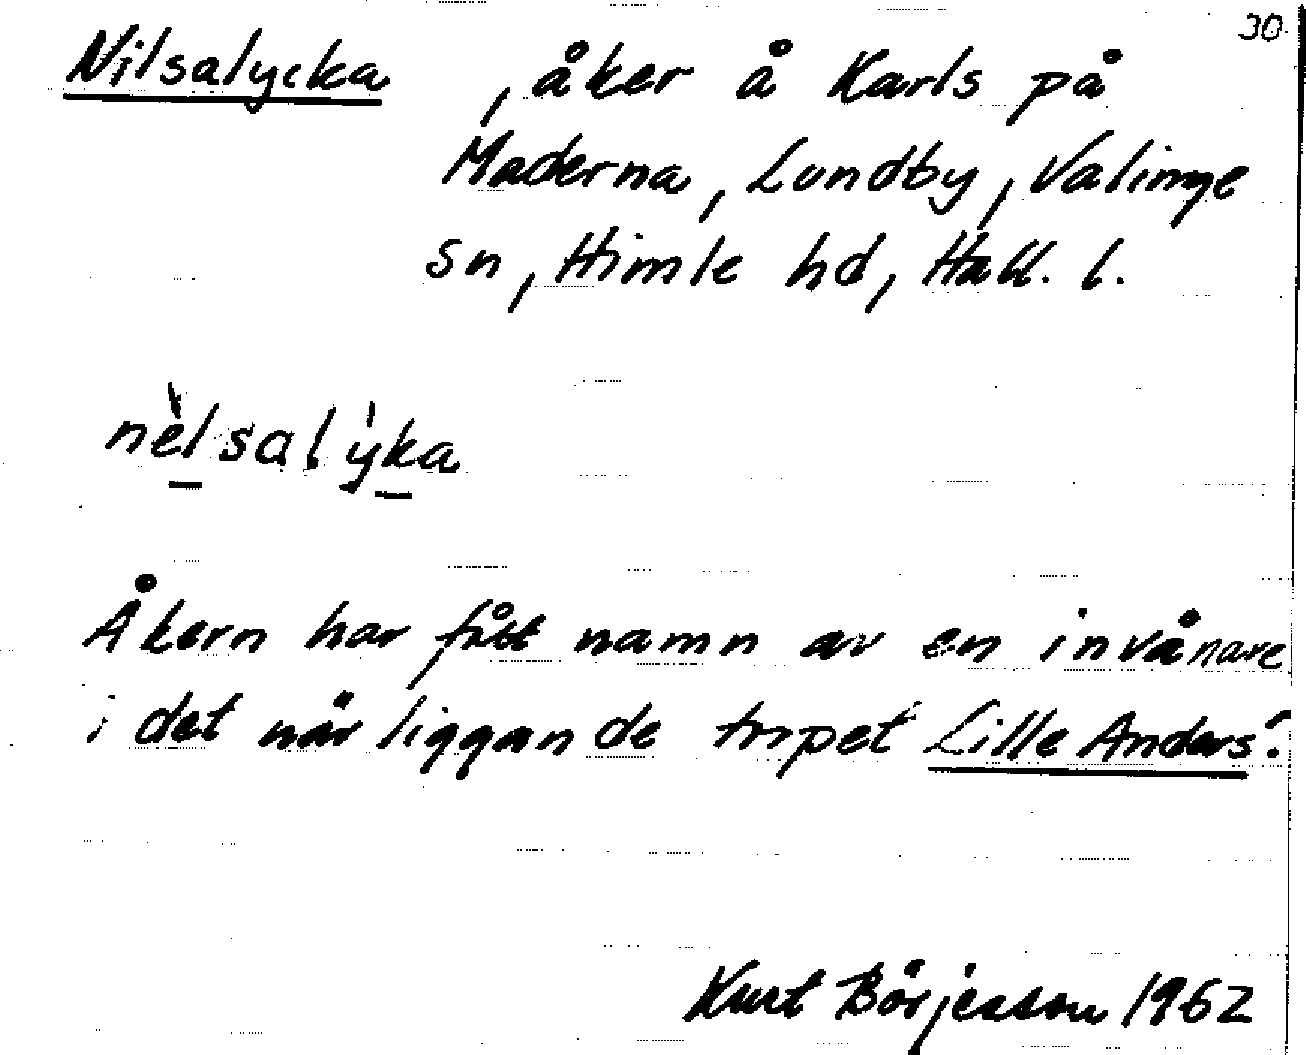 30
Nilsalycka , åker å Karls på
Maderna, Lundby, Valinge
sn, Himle hd, Hall. l.
nèlsalỳka
Åkern har fått namn av en invånare
i det när liggande torpet Lille Anders.
Kurt Börjesson 1962